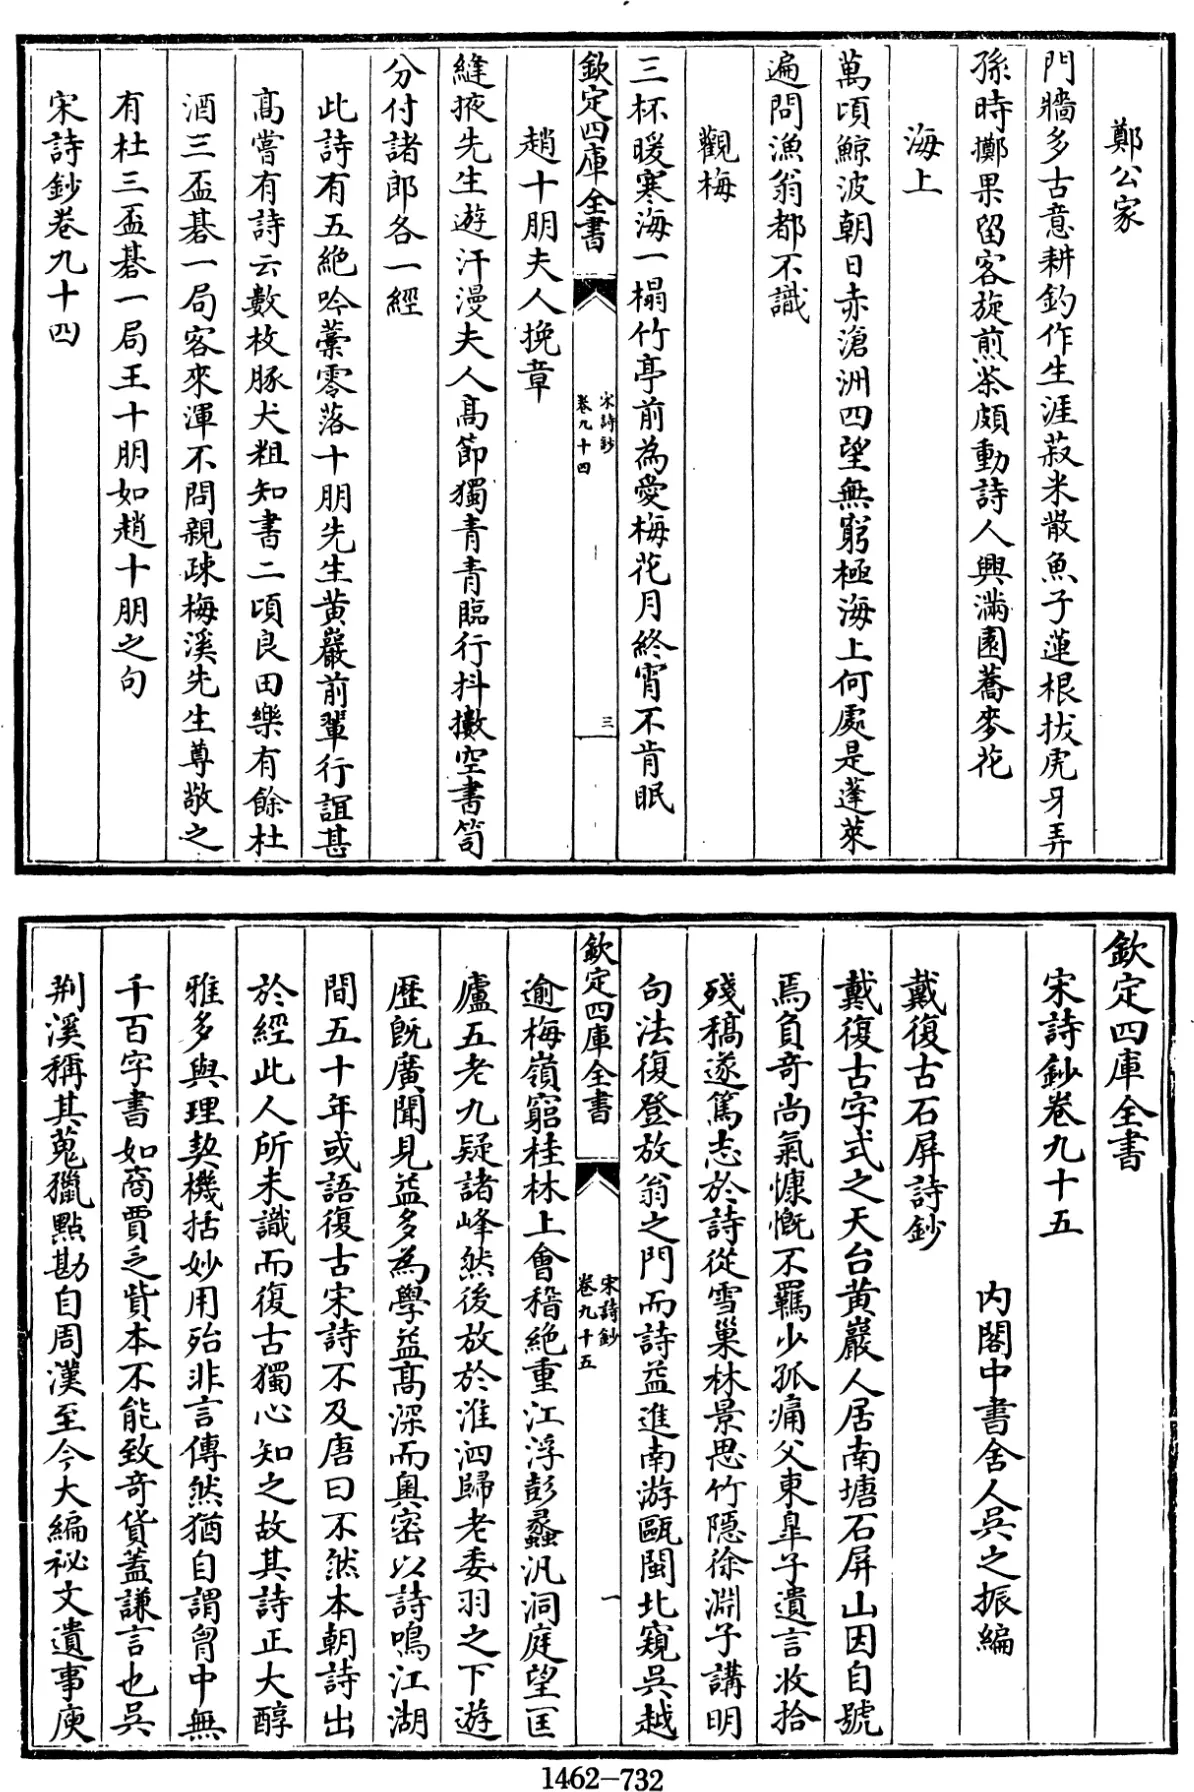 鄭公家
門牆多古意耕釣作生涯菽米散魚子蓮根拔虎牙弄
孫時擲果留客旋煎茶頗動詩人興滿園蕎麥花
海上
萬頃鯨波朝日赤滄洲四望無窮極海上何處是蓬萊
遍問漁翁都不識
觀梅
三杯暖寒海一榻竹亭前為愛梅花月終宵不肯眠
欽定四庫全書
宋詩鈔
卷九十四
三
趙十朋夫人挽章
縫掖先生遊汗漫夫人高節獨青青臨行抖擻空書笥
分付諸郎各一經
此詩有五絶吟藁零落十朋先生黄巖前輩行誼甚
高嘗有詩云數枚豚犬粗知書二頃良田樂有餘杜
酒三盃碁一局客來渾不問親疎梅溪先生尊敬之
有杜三盃碁一局王十朋如趙十朋之句
宋詩鈔卷九十四
欽定四庫全書
宋詩鈔卷九十五
內閣中書舍人吳之振編
戴復古石屏詩鈔
戴復古字式之天台黄巖人居南塘石屏山因自號
焉負奇尚氣慷慨不羈少孤痛父東臯子遺言收拾
殘稿遂篤志於詩從雪巢林景思竹隱徐淵子講明
句法復登放翁之門而詩益進南游甌閩北窺吳越
欽定四庫全書
宋詩鈔
卷九十五
一
逾梅嶺窮桂林上會稽絶重江浮彭蠡汎洞庭望匡
廬五老九疑諸峰然後放於淮泗歸老委羽之下遊
歷既廣聞見益多為學益高深而奧密以詩鳴江湖
間五十年或語復古宋詩不及唐曰不然本朝詩出
於經此人所未識而復古獨心知之故其詩正大醇
雅多與理契機括妙用殆非言傳然猶自謂胷中無
千百字書如商賈乏貲本不能致奇貨蓋謙言也吳
荆溪稱其蒐獵點勘自周漢至今大編祕文遺事庾
1462—732